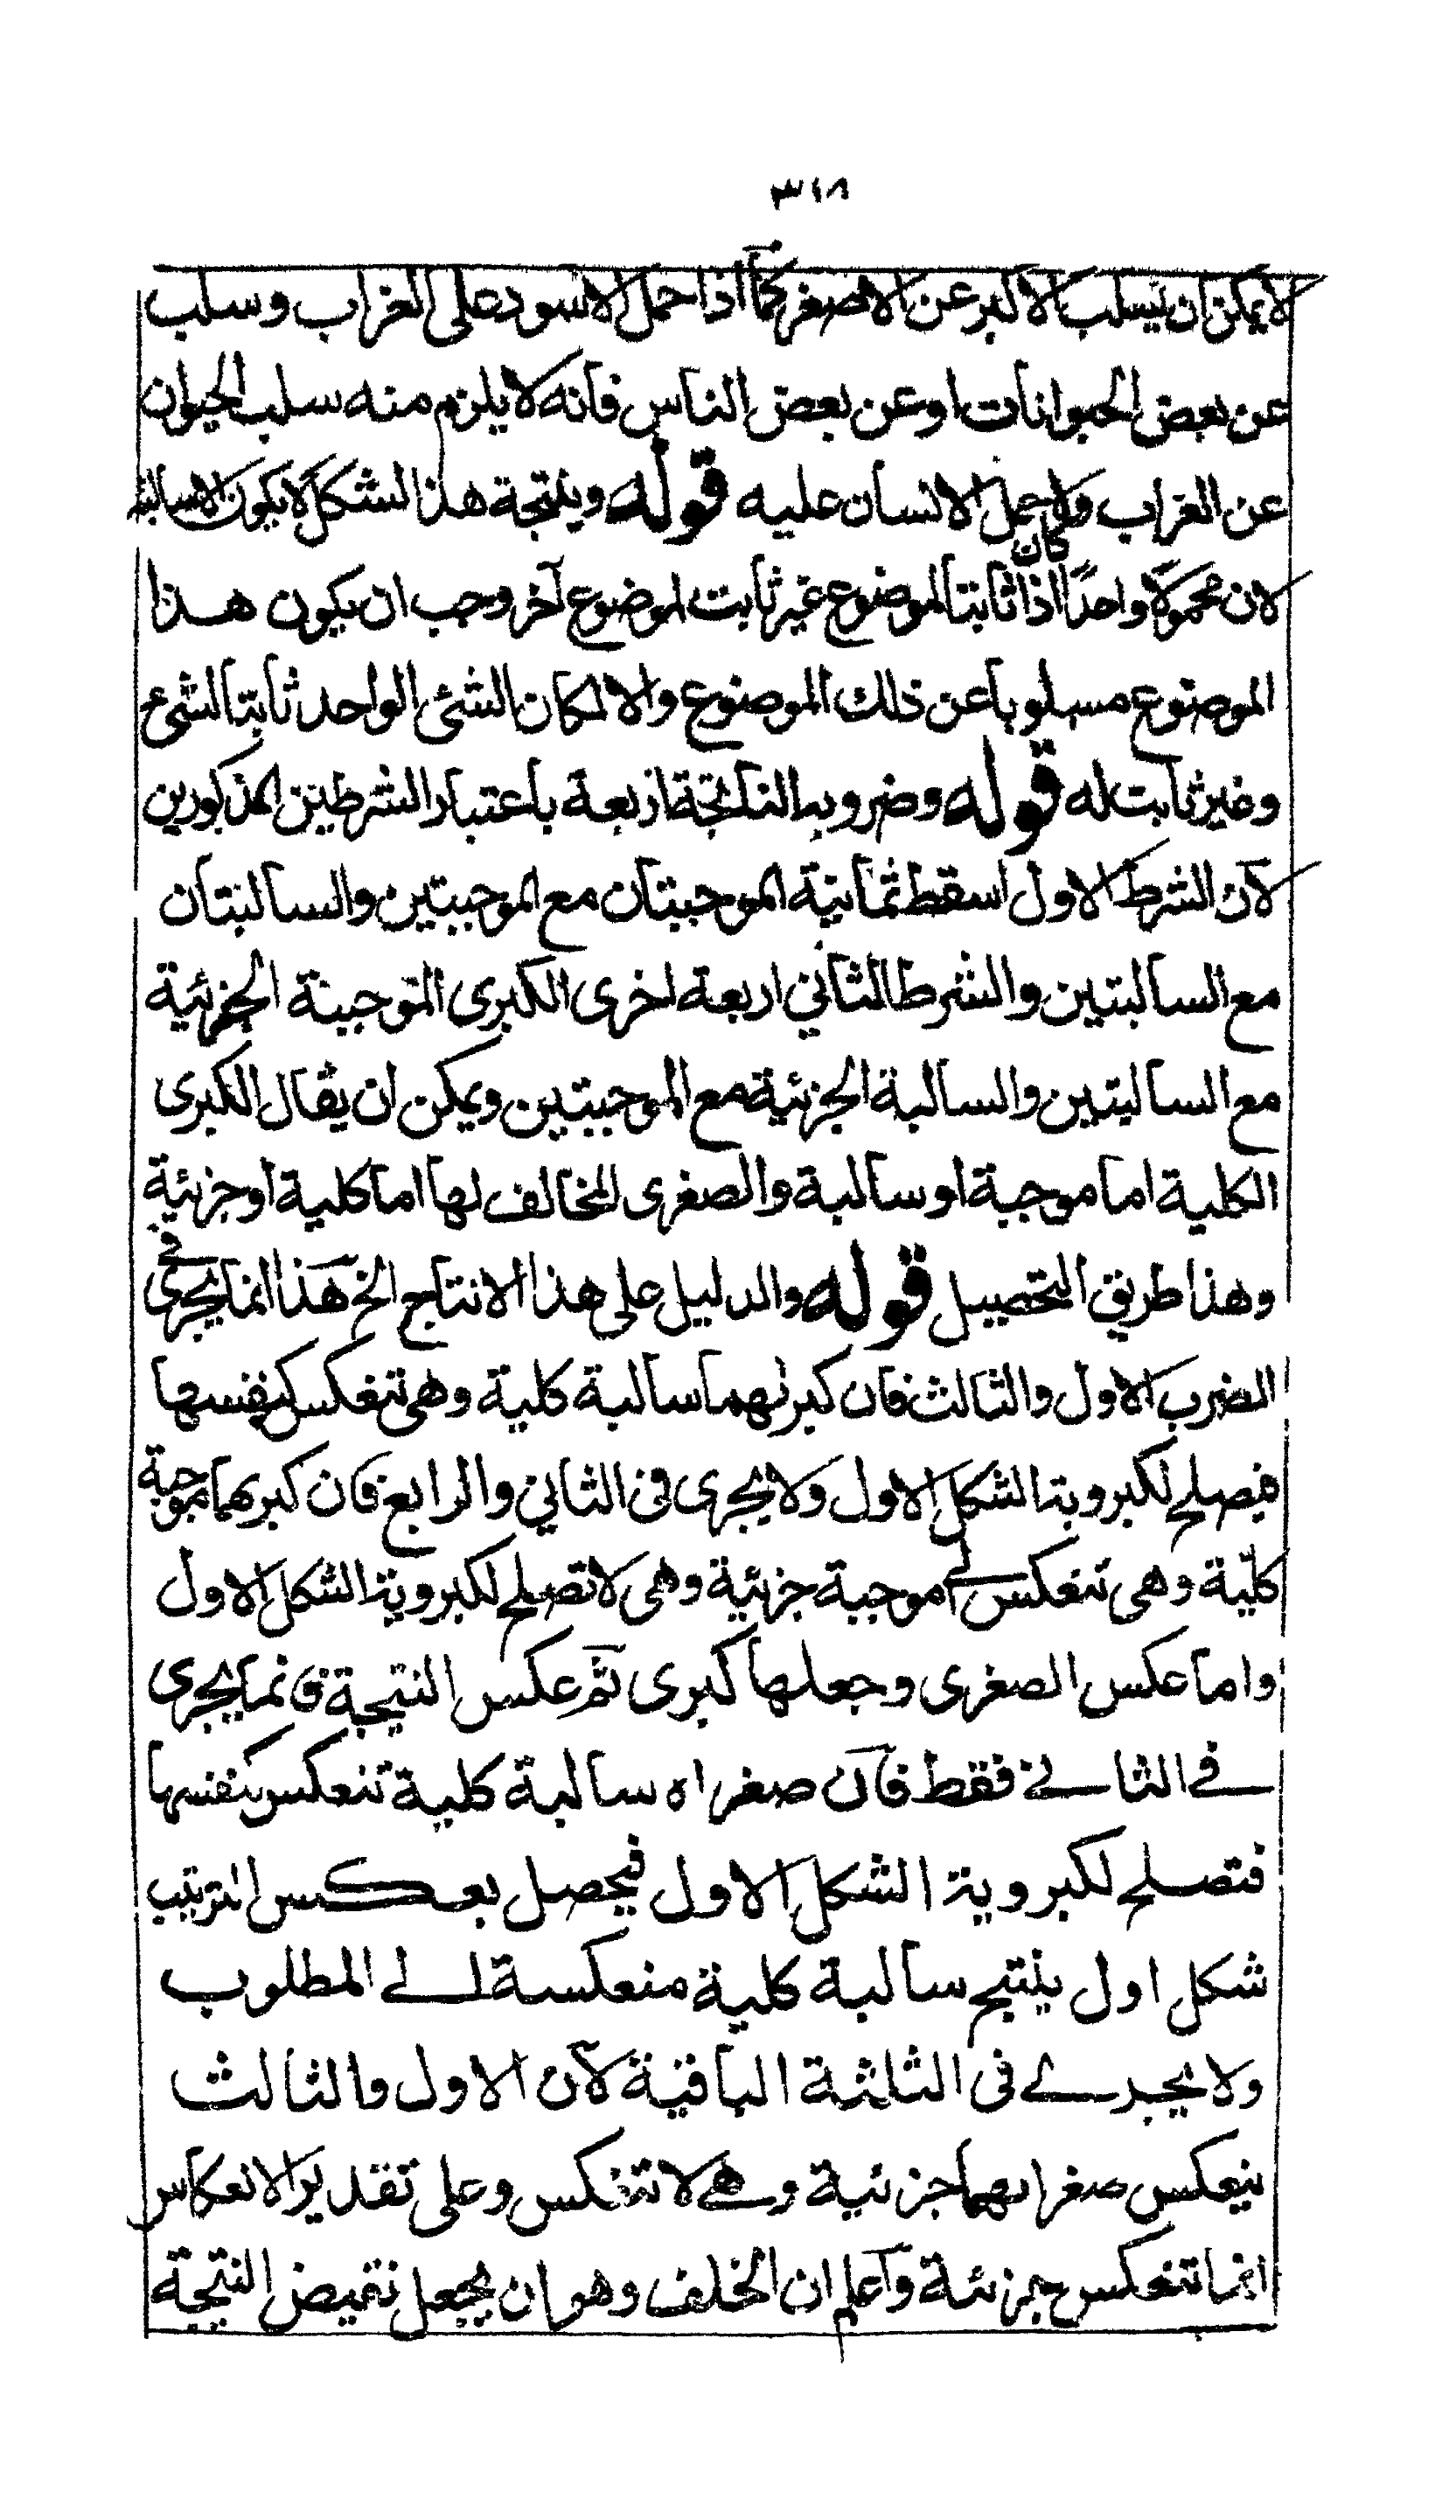 ٣١٨
لا يمكن ان يسلب الاكبر عن الاصغر كما اذا حمل الاسود على الغراب وسلب
عن بعض الحيوانات او عن بعض الناس فانه لا يلزم منه سلب الحيوان
عن الغراب ولا حمل الانسان عليه قوله وينتجة هذا الشكل لا يكون الا سالبة
لان محمولا واحدًا اذا كان ثابتا لموضوع غير ثابت لموضوع آخر وجب ان يكون هذا
الموضوع مسلوبا عن ذلك الموضوع والا لكان الشئ الواحد ثابتا لشئ
وغير ثابت له قوله وضروبه الناتجة اربعة باعتبار الشرطين المذكورين
لان الشرط الاول اسقط ثمانية الموجبتان مع الموجبتين والسالبتان
مع السالبتين والشرط الثاني اربعة اخرى الكبرى الموجبة الجزئية
مع السالبتين والسالبة الجزئية مع الموجبتين ويمكن ان يقال الكبرى
الكلية اما موجبة او سالبة والصغرى المخالف لها اما كلية او جزئية
وهذا طريق التحصيل قوله والدليل على هذا الانتاج الخ هذا انما يجرى فى
الضرب الاول والثالث فان كبرٰهما سالبة كلية وهى تنعكس كنفسها
فيصلح لكبروية الشكل الاول ولا يجرى فى الثاني والرابع فان كبرٰهما موجبة
كلّية وهى تنعكس الى موجبة جزئية وهى لا تصلح لكبروية الشكل الاول
واما عكس الصغرى وجعلها كبرى ثم عكس النتيجة فانما يجرى
فى الثانى فقط فان صغراه سالبة كلية تنعكس كنفسها
فتصلح لكبروية الشكل الاول فيحصل بعكس الترتيب
شكل اول ينتج سالبة كلية منعكسة الى المطلوب
ولا يجرى فى الثلثة الباقية لان الاول والثالث
ينعكس صغراهما جزئية وهى لا تنعكس وعلى تقدير الانعكاس
انما تنعكس جزئية واعلم ان الخلف وهو ان يجعل نقيض النتيجة